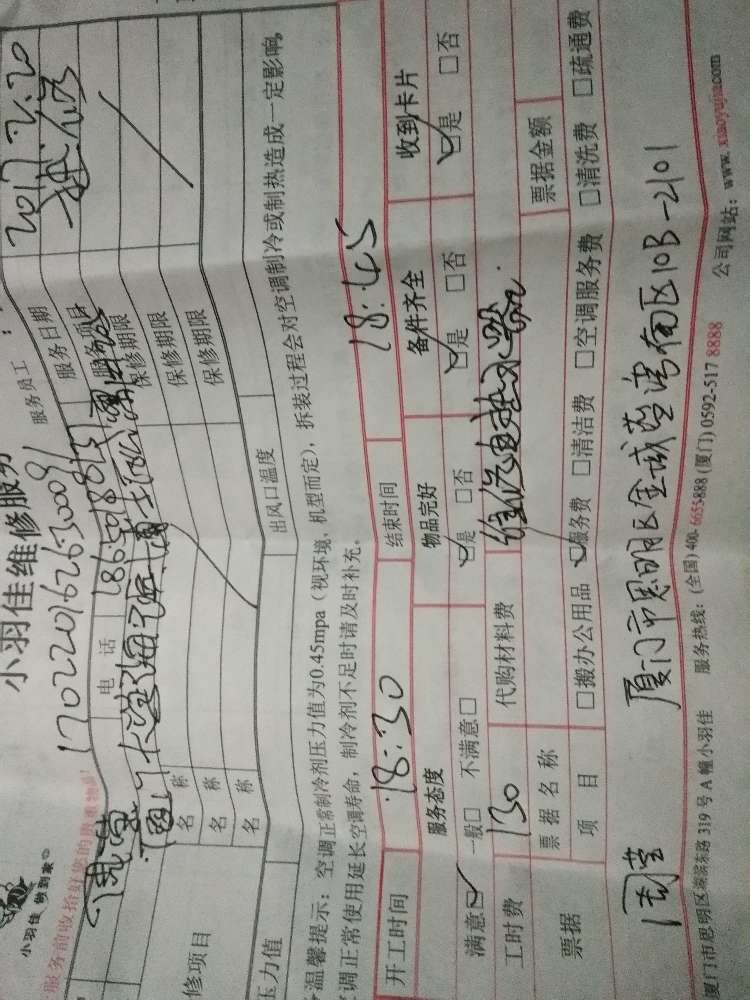 小羽佳 做到家
小羽佳维修服务
服务前收拾好您的贵重物品!
服务员工
170220162630009
服务日期
2017.2.20
电话
18650188137
修项目
名称
保修期限
名称
保修期限
名称
保修期限
压力值
出风口温度
温馨提示:空调正常制冷剂压力值为0.45mpa(视环境、机型而定),拆装过程会对空调制冷或制热造成一定影响,
调正常使用延长空调寿命,制冷剂不足时请及时补充。
开工时间
18:30
结束时间
18:45
服务态度
物品完好
备件齐全
收到卡片
满意☑ 一般□ 不满意□
☑是 □否
☑是 □否
☑是 □否
工时费
130
代购材料费
维修电热水器.
票据
票据名称
票据金额
项目
□搬办公用品 ☑服务费 □清洁费 □空调服务费 □清洗费 □疏通费
厦门市思明区金域蓝湾南区10B-2101
厦门市思明区湖滨东路319号A幢小羽佳 服务热线:(全国)400-6655-888 (厦门)0592-517 8888 公司网站:www.xiaoyujia.com